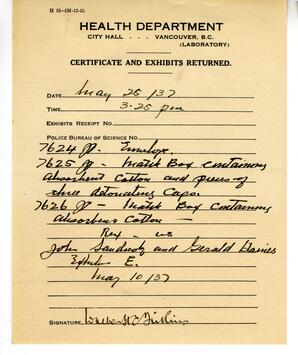 H 53-5M-12-32.
HEALTH DEPARTMENT
CITY HALL . . . VANCOUVER, B.C.
(LABORATORY)
CERTIFICATE AND EXHIBITS RETURNED.
DATE May 25/37
TIME 3.25 pm
EXHIBITS RECEIPT NO.
POLICE BUREAU OF SCIENCE NO.
7624 - Envelope.
7625 - Match Box containing
Absorbent Cotton and pieces of
three detonating Caps.
7626 - Match Box containing
Absorbent Cotton -
Rex - vs
John Sandusky and Gerald Haines
E.
May 10/37
SIGNATURE